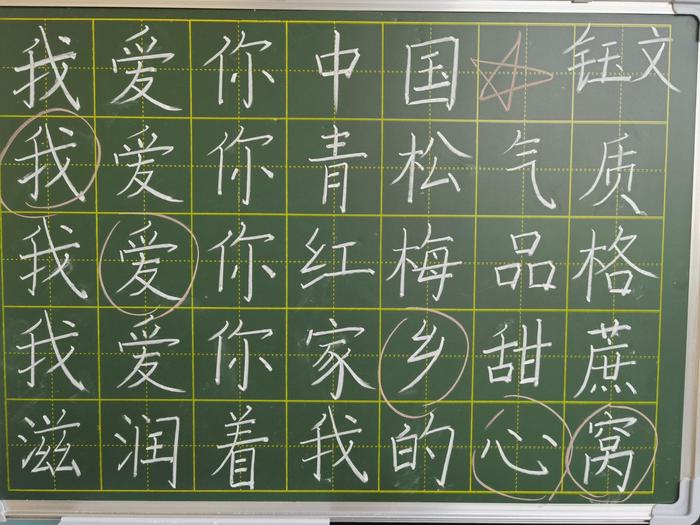 我爱你中国 钰文
我爱你青松气质
我爱你红梅品格
我爱你家乡甜蔗
滋润着我的心窝